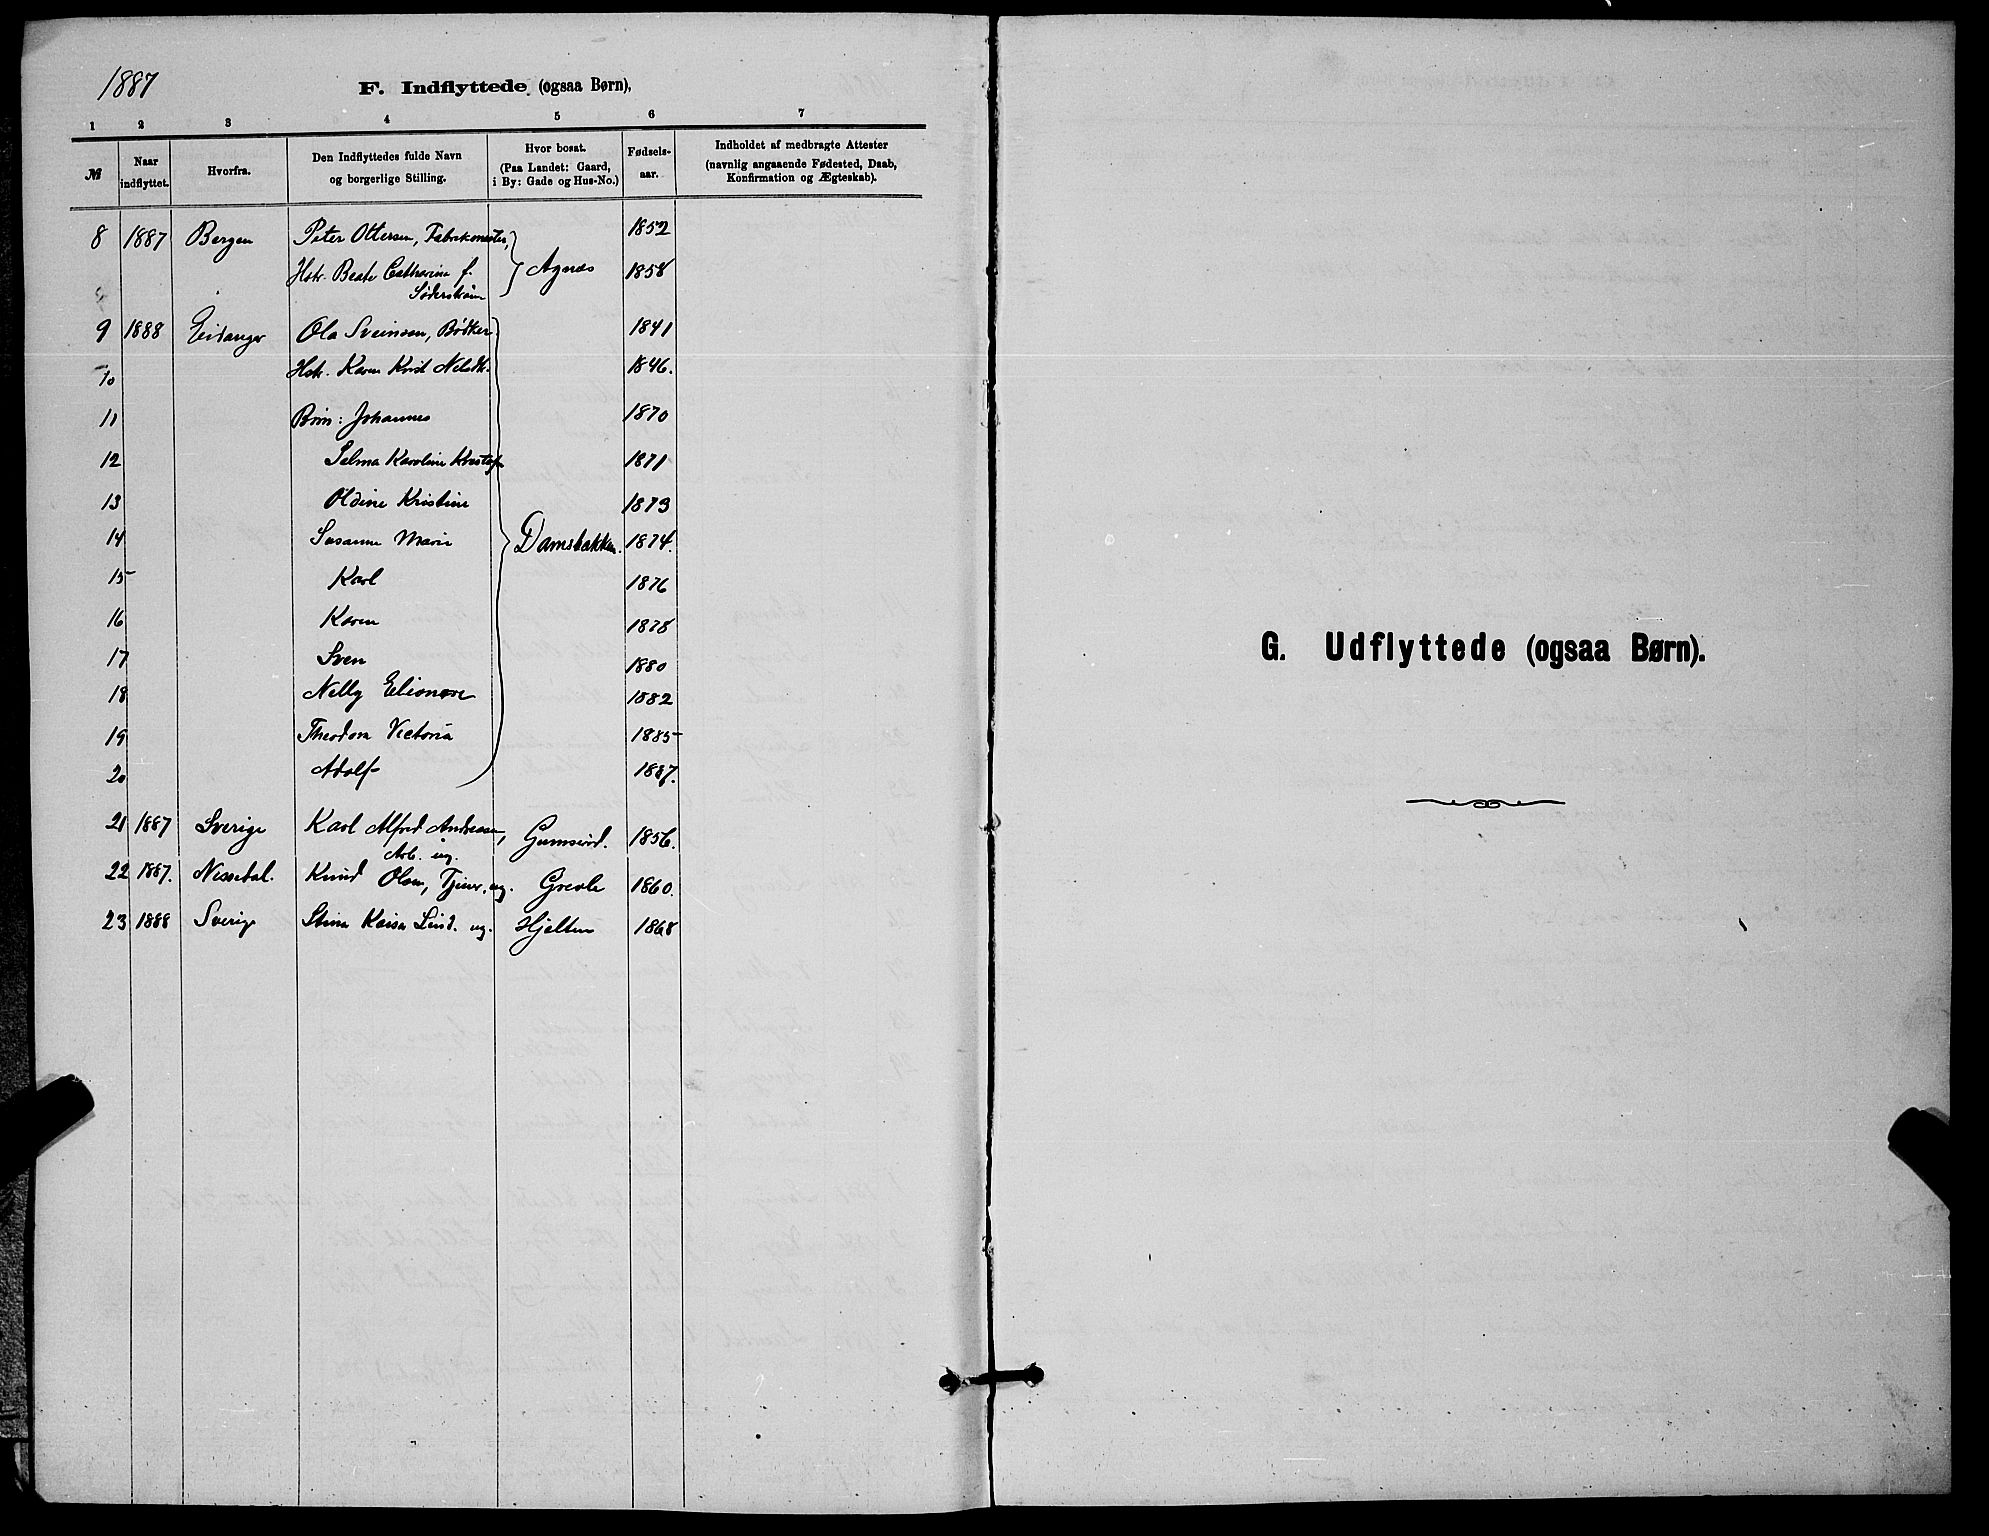 1887
F. Indflyttede (ogsaa Børn),
1 2 3 4 5 6 7
№ Naar indflyttet. Hvorfra. Den Indflyttedes fulde Navn og borgerlige Stilling. Hvor bosat. (Paa Landet: Gaard, i By: Gade og Hus-No.) Fødsels-aar. Indholdet af medbragte Attester (navnlig angaaende Fødested, Daab, Konfirmation og Ægteskab).
8 1887 Bergen Peter Ottersen, Fabrikmester, 1852
Hstr. Beate Catharine f. Agnes 1858
Söderström
9 1888 Eidanger Ola Sveinsen, Bödker 1841
10 Hstr. Karen Krist Nelsdtr. 1846.
11 Börn: Johannes 1870
12 Selma Karoline 1871
13 Oldine Kristine 1873
14 Susanne Marie Damsbakken. 1874.
15 Karl 1876
16 Karen 1878
17 Sven 1880
18 Nelly Elionore 1882
19 Theodora Victoria 1885
20 Adolf 1887.
21 1887 Sverige Karl Alfred Andreasen, Gumserød. 1856.
Arb. ug.
22 1887. Nissedal. Knud Olsen, Tjener, ug. Grevle 1860.
23 1888 Sverige Stina Kaisa Lind. ug. Hjelten 1868
G. Udflyttede (ogsaa Børn).